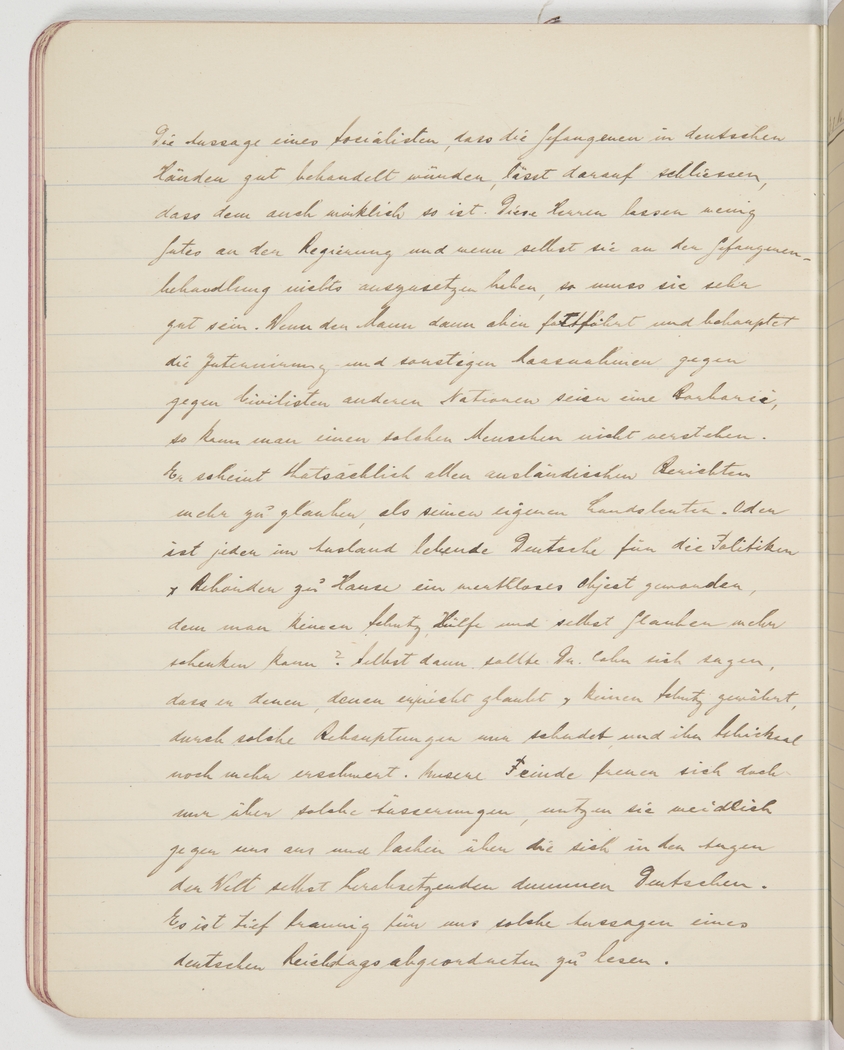 Die Aussage eines Socialisten, dass die Gefangenen in deutschen
Händen gut behandelt würden, lässt darauf schliessen,
dass dem auch wirklich so ist. Diese Herren lassen wenig
Gutes an der Regierung und wenn selbst sie an der Gefangenen-
behandlung nichts auszusetzen haben, so muss sie sehr
gut sein. Wenn der Mann dann aber fortfährt und behauptet
die Internierung und sonstigen Maasnahmen gegen
gegen Civilisten anderen Nationen seien eine Barbarei,
so kann man einen solchen Menschen nicht verstehen.
Er scheint thatsächlich allen ausländischen Berichten
mehr zu glauben, als seinen eigenen Landsleuten. Oder
ist jeder im Ausland lebende Deutsche für die Politiker
& Behörden zu Hause ein wertloses Objest geworden,
dem man keinen Schutz, Hülfe und selbst Glauben mehr
schenken kann? Selbst dann sollte Dr. Cohn sich sagen,
dass er denen, denen er nicht glaubt & keinen Schutz gewährt,
durch solche Behauptungen nur schadet und ihr Schicksal
noch mehr erschwert. Unsere Feinde freuen sich doch
nur über solche Äusserungen, nutzen sie weidlich
gegen uns aus und lachen über die sich in den Augen
der Welt selbst herabsetzenden dummen Deutschen.
Es ist tief traurig für uns solche Aussagen eines
deutschen Reichstagsabgeordneten zu lesen.